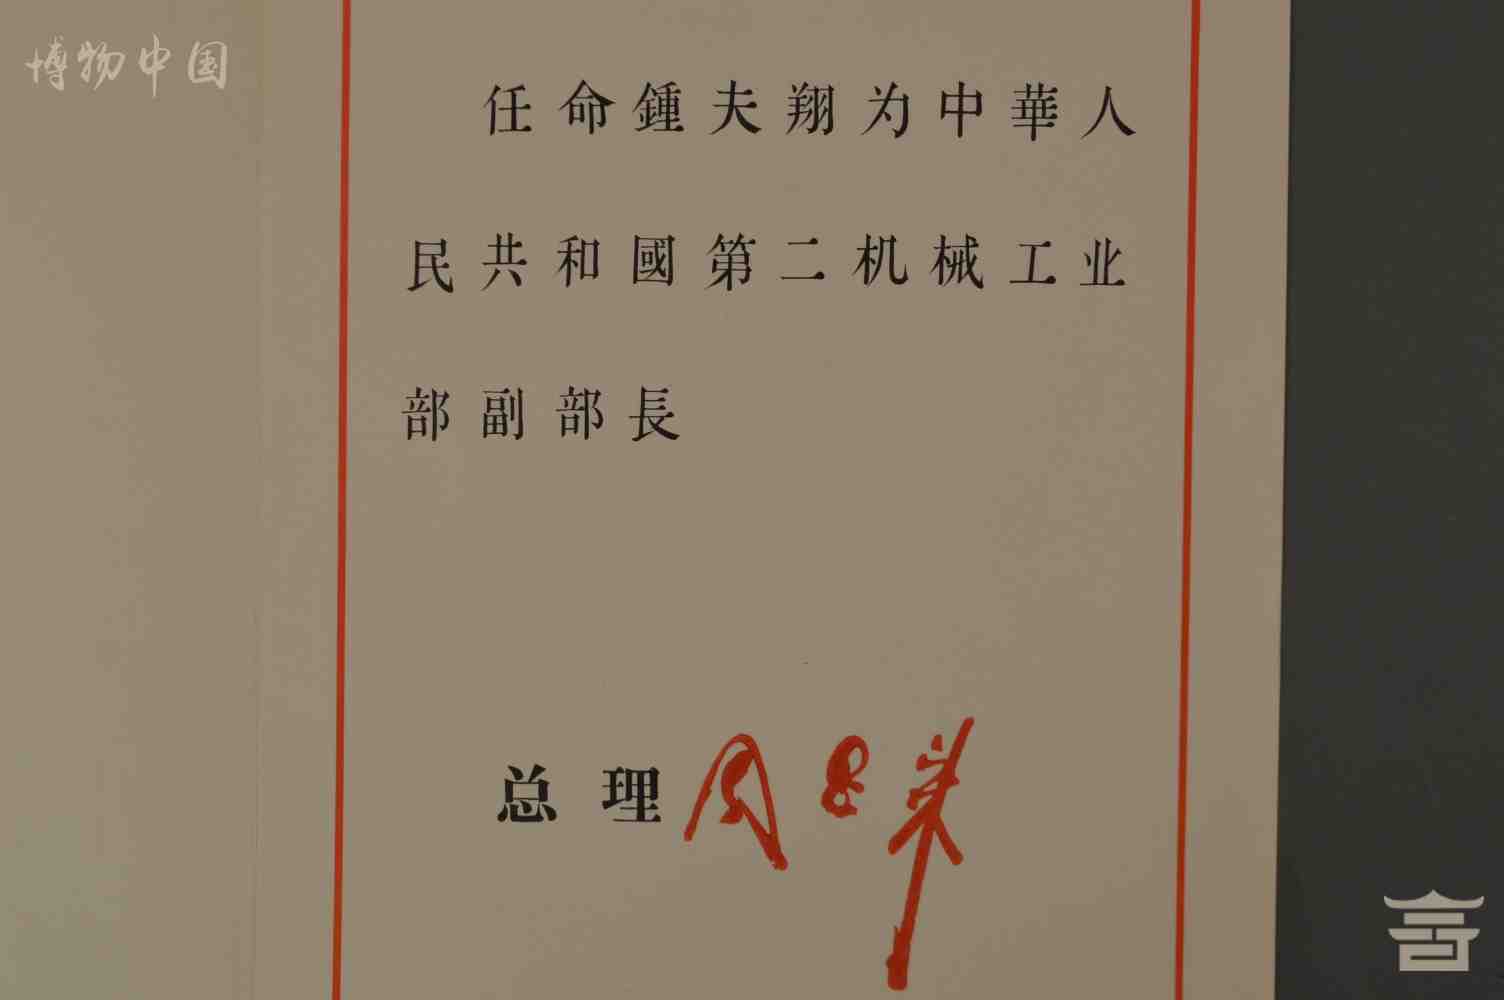 博物中国
任命鍾夫翔为中華人
民共和國第二机械工业
部副部長
总理 周恩来